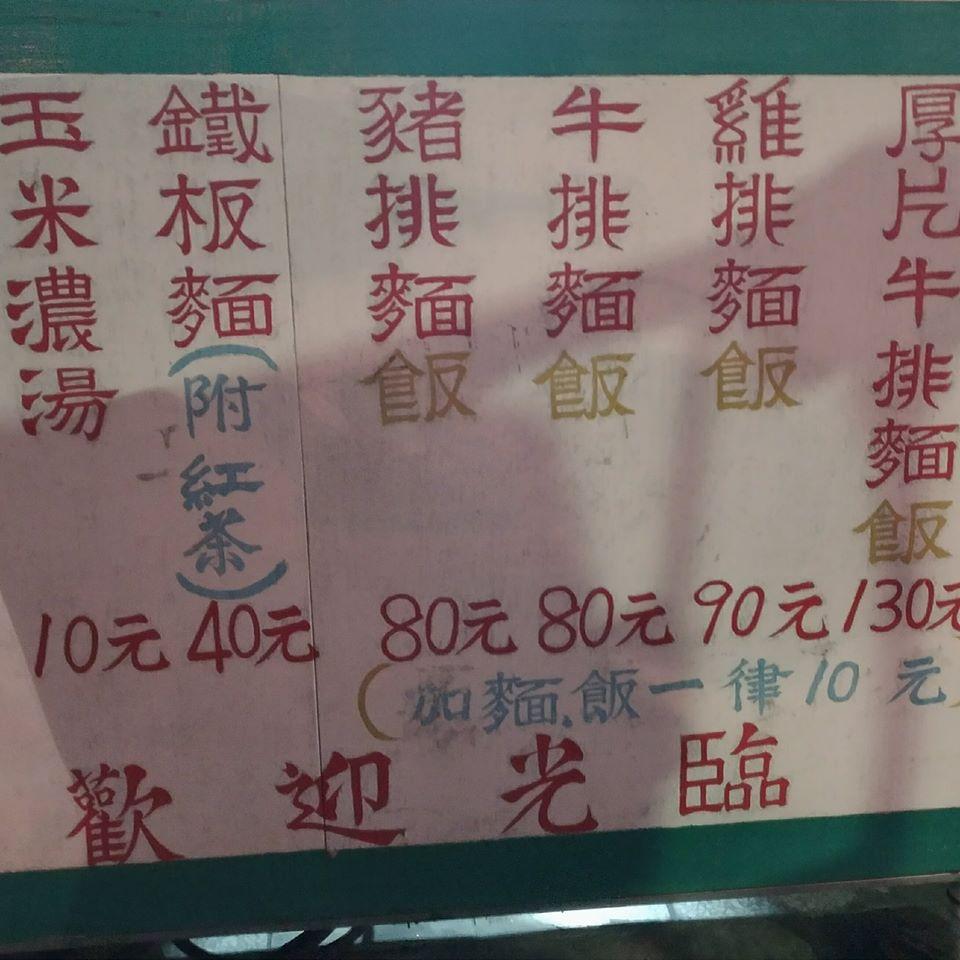 厚片牛排麵飯 130元
雞排麵飯 90元
牛排麵飯 80元
豬排麵飯 80元
鐵板麵(附紅茶) 40元
玉米濃湯 10元
(加麵.飯一律10元)
歡迎光臨